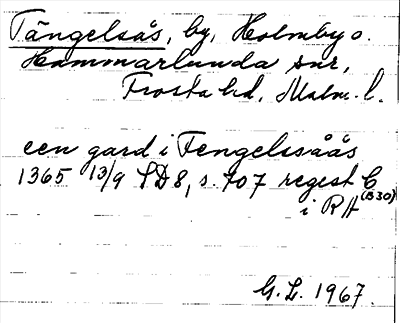 Tängelsås, by, Holmby o.
Hammarlunda snr,
Frosta hd, Malm. l.
een gard i Tengelssåås
1365 13/9 SD 8, s. 707 regest C
i RA (B 30)
G. L. 1967.